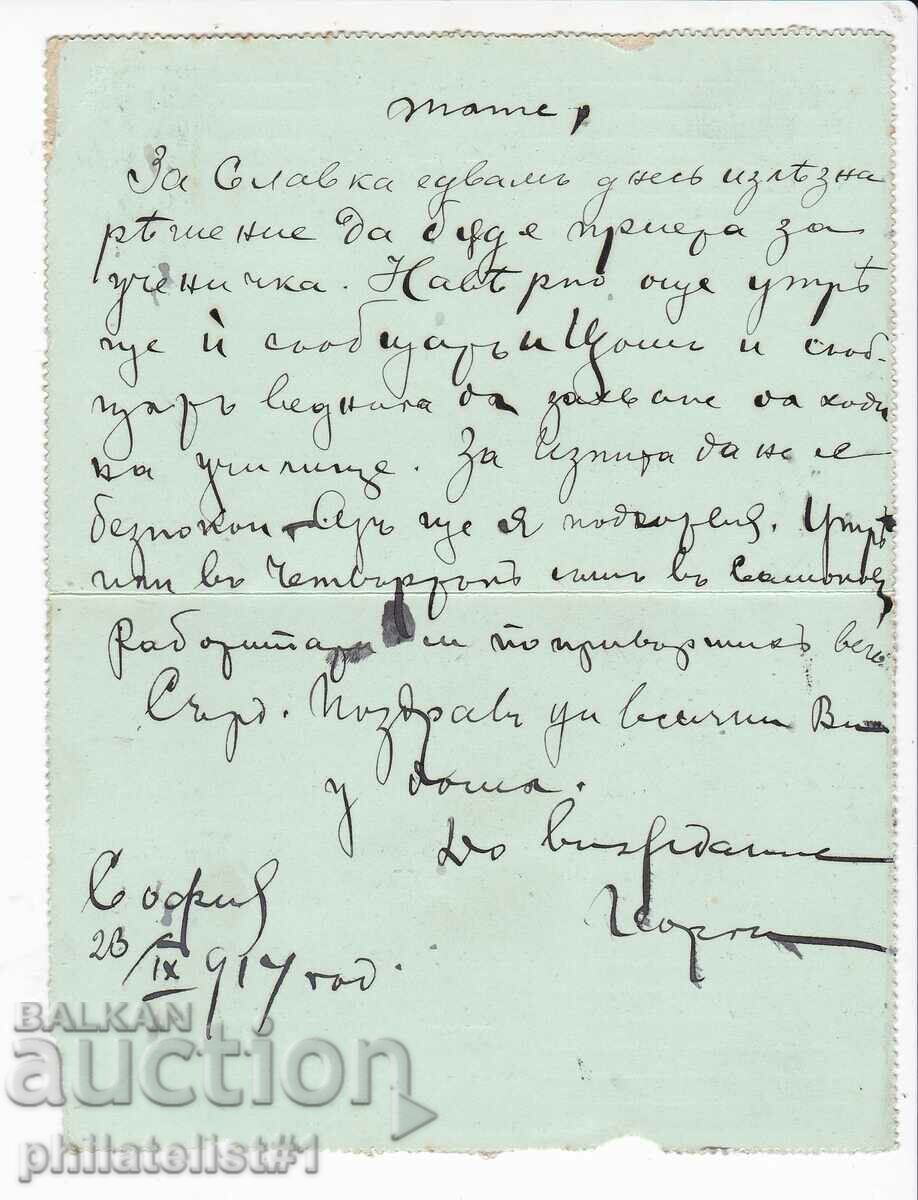 тате,
За Славка едвамъ днесъ излѣзна
рѣшение да бѫде приета за
ученичка. Навѣрно още утрѣ
ще ѝ съобщатъ и щомъ и съоб-
щатъ веднага да захване да ходи
на училище. За изпита да не се
безпокои. Азъ ще я подготвя. Утрѣ
или въ четвъртъкъ съмъ въ Самоковъ
Работата си по привършихъ вече
Сърд. Поздравъ ди всички Ви
у дома.
До виждание
Георги
София
23/IX 917 год.
BALKAN
auction
philatelist#1